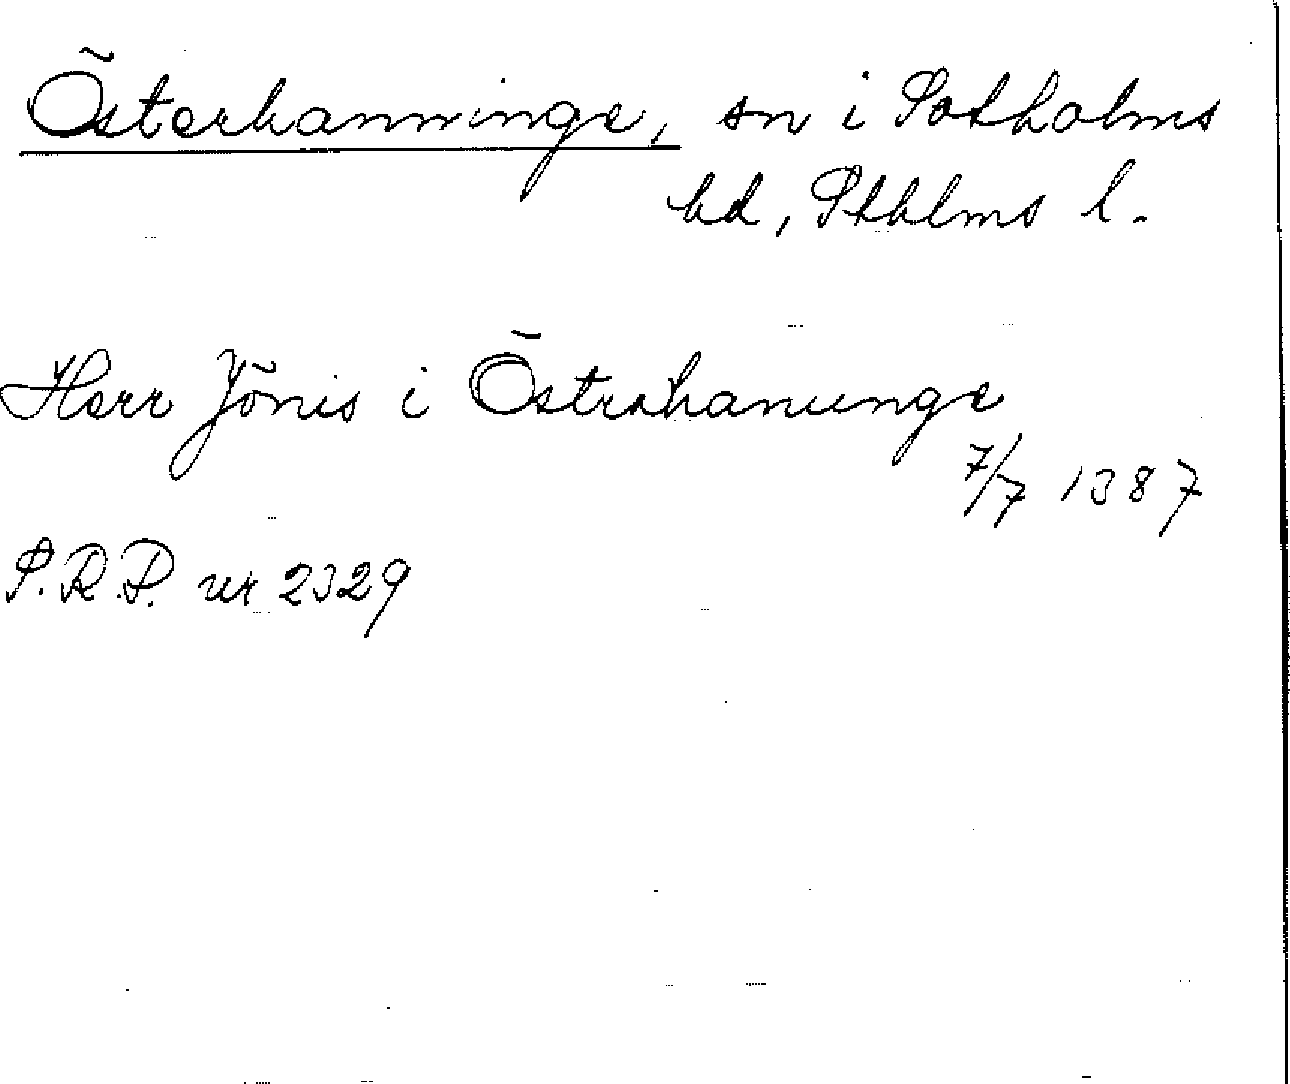 Österhanninge, sn i Sotholms
hd, Sthlms l.
Herr Jönis i Östrahanunge
7/7 1387
S.R.P. nr 2329